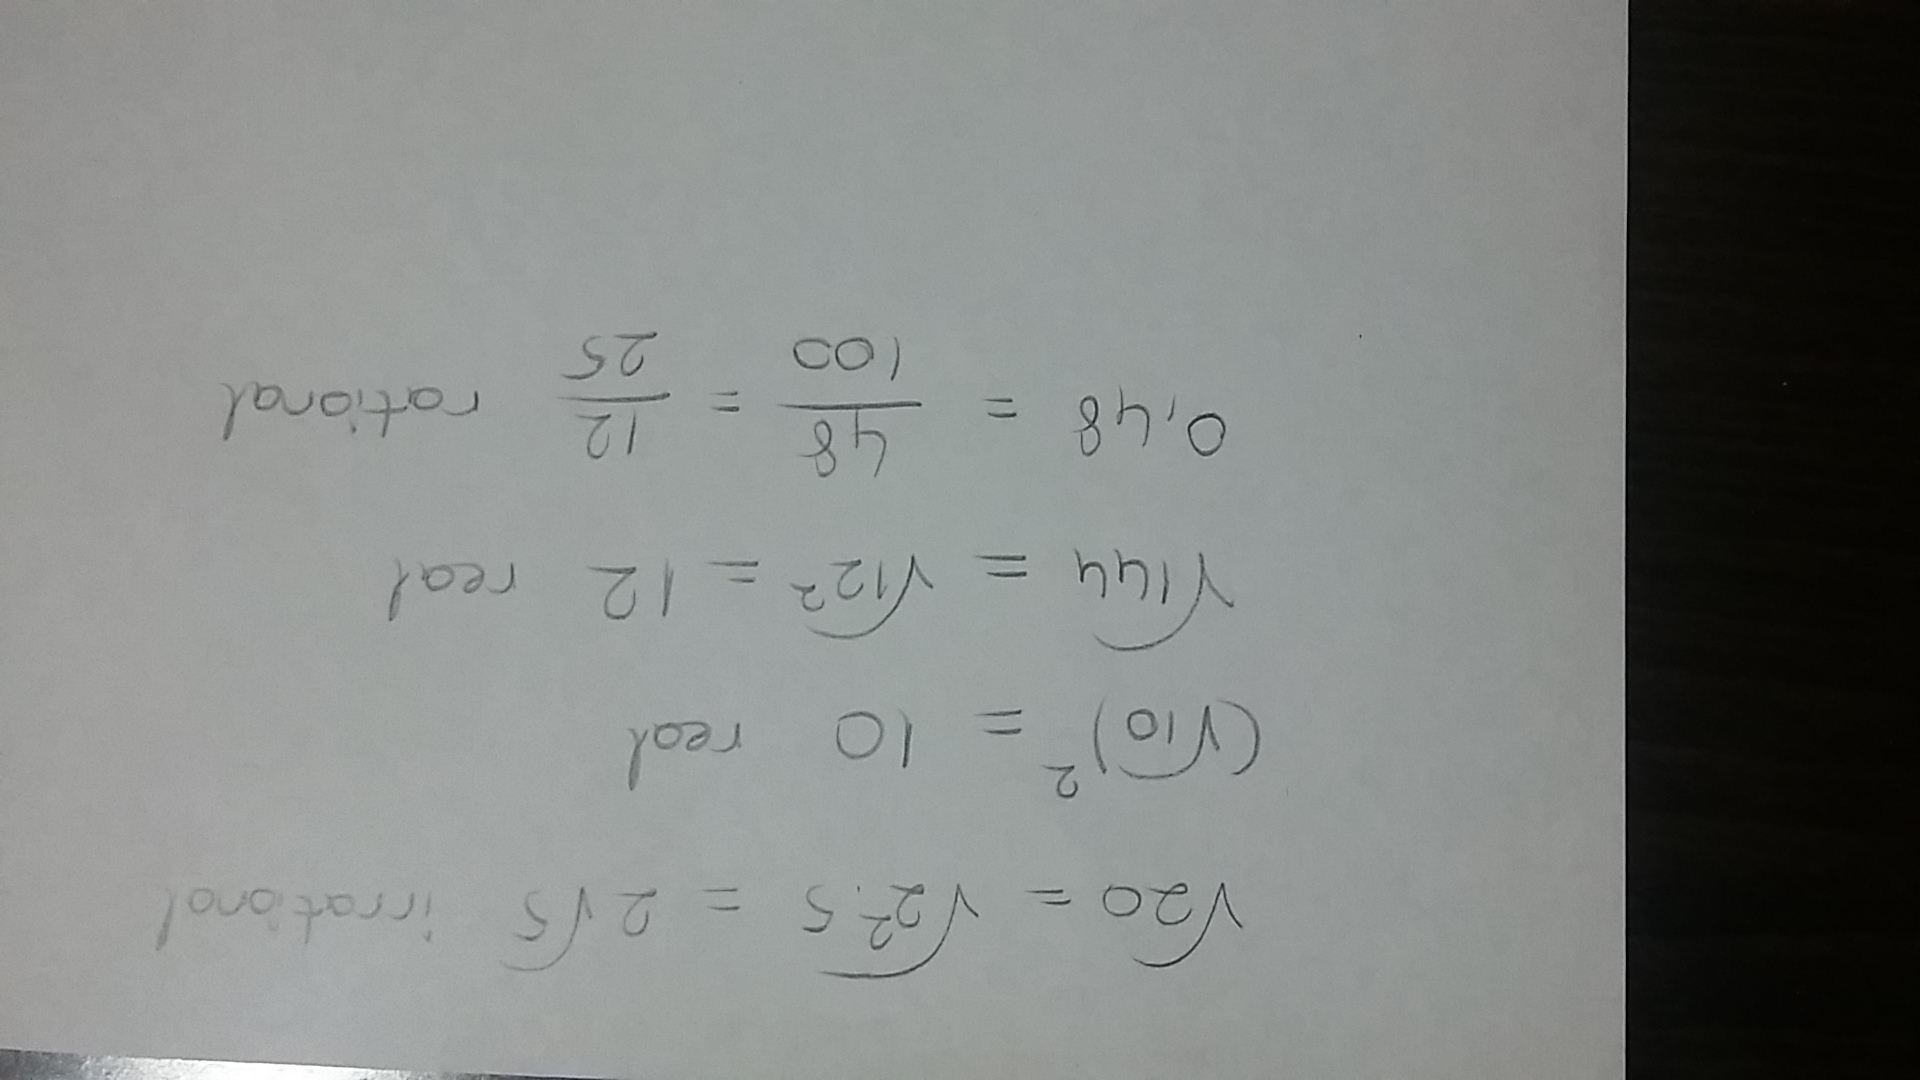 √20 = √2²·5 = 2√5 irrational
(√10)² = 10 real
√144 = √12² = 12 real
0,48 = 48/100 = 12/25 rational